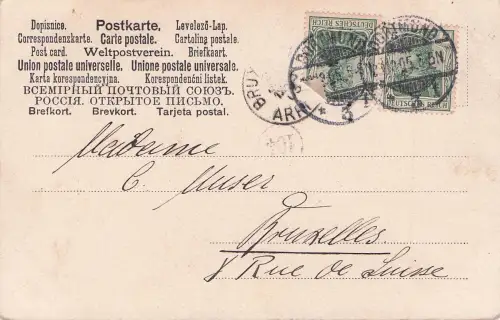 Dopisnice. Postkarte. Levelező-Lap.
Correspondenzkarte. Carte postale. Cartolina postale.
Post card. Weltpostverein. Briefkaart.
Union postale universelle. Unione postale universale.
Karta korespondencyjna. Korespondenční listek.
ВСЕМІРНЫЙ ПОЧТОВЫЙ СОЮЗЪ.
РОССІЯ. ОТКРЫТОЕ ПИСЬМО.
Brefkort. Brevkort. Tarjeta postal.
DEUTSCHES REICH
DEUTSCHES REICH
DORTMUND
BRUX
ARR
Madame
C. Muser
Bruxelles.
8 Rue de Suisse